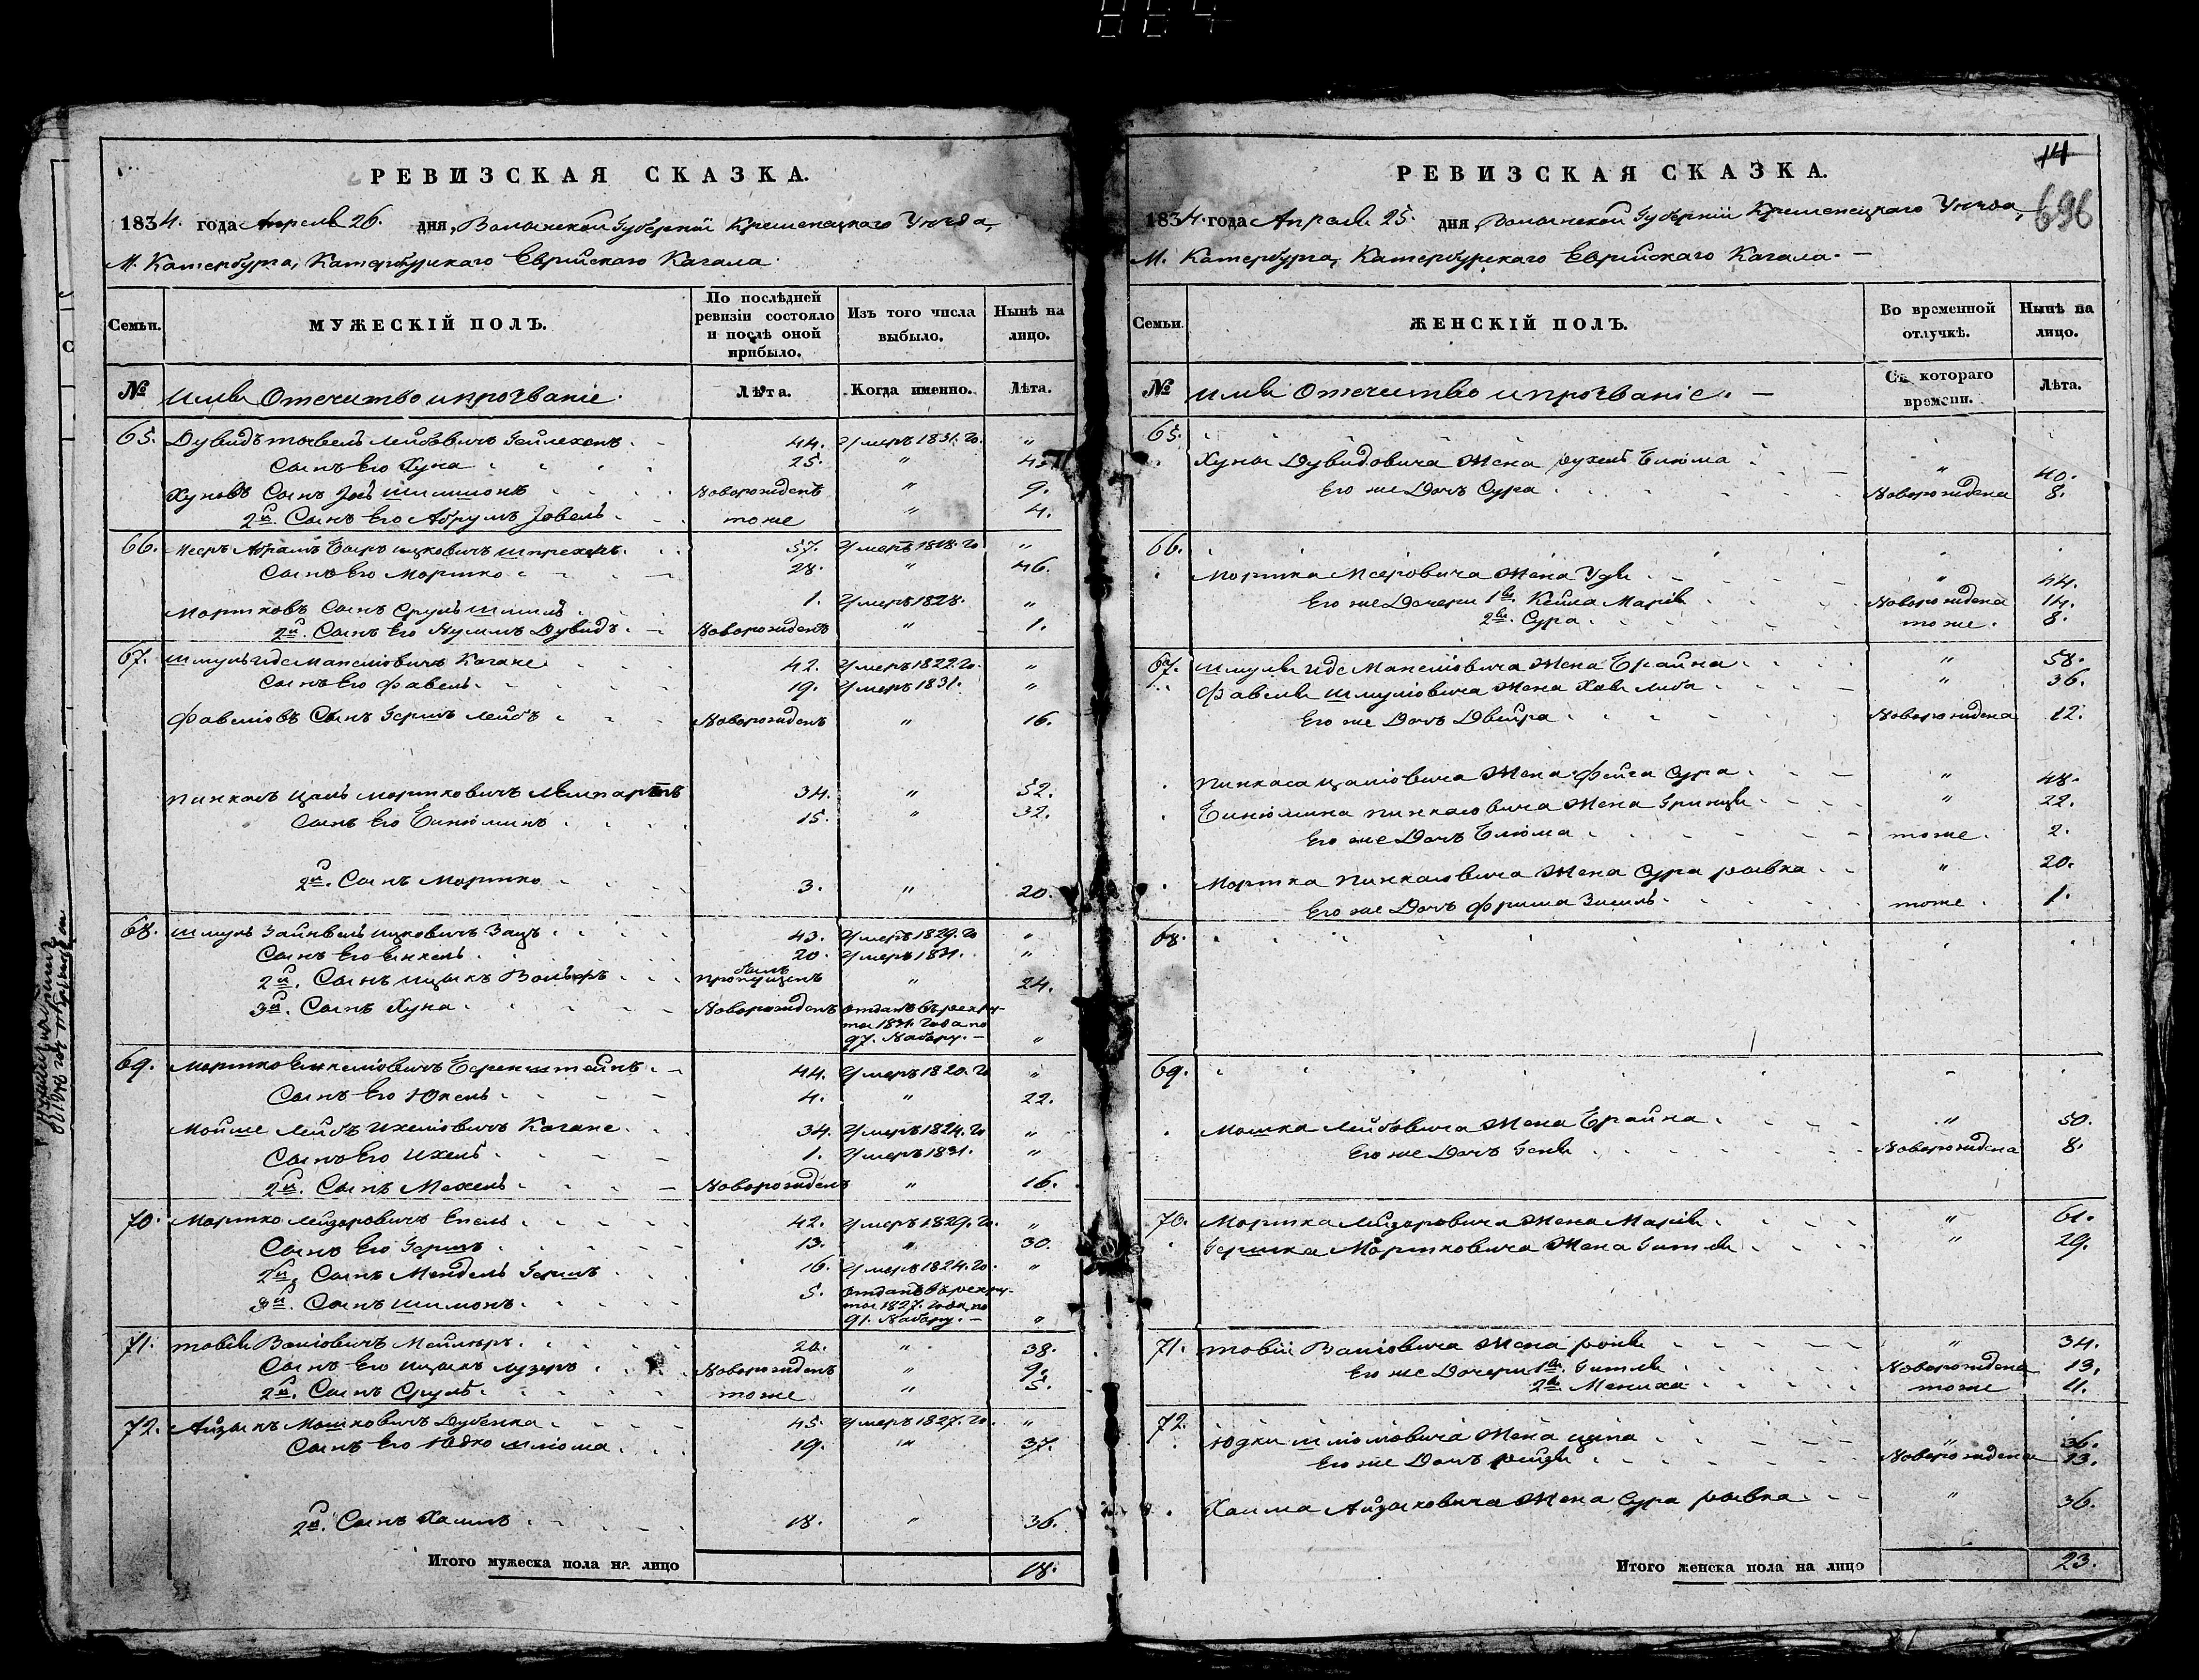 РЕВИЗСКАЯ СКАЗКА.
1834. года Апреля 26. дня, Волынской Губернiи Кременецкаго Уѣзда,
М. Катербурга, Катербурскаго Еврейскаго Кагала
Семьи.
МУЖЕСКIЙ ПОЛЪ.
По послѣдней ревизiи состояло и послѣ оной прибыло.
Изъ того числа выбыло.
Нынѣ на лицо.
№ Имя Отечество и прозванiе. Лѣта. Когда именно. Лѣта.
65. Дувидъ Лейбовичъ 44. Умеръ 1831. го "
Сынъ Его Хуна 25. "
Хуновъ Сынъ Новорожденъ " 9.
2й. Сынъ Его Абрумъ тоже " 4.
66. Ицковичъ 57. Умеръ 1818. го "
Сынъ Его Мортко 28. " 46.
Мортковъ Сынъ Сруль 1. Умеръ 1828. "
2й. Сынъ Его Дувидъ Новорожденъ " 1.
67. Шмуль Иде Каганъ 42. Умеръ 1822. го "
Сынъ Его Фавель 19. Умеръ 1831. "
Фавелiовъ Сынъ Гершъ Лейбъ Новорожденъ " 16.
Пинкасъ Цаль Мортковичъ 34. " 52.
Сынъ Его Бинюминъ 15. " 32.
2й. Сынъ Мортко 3. " 20.
68. Шмуль Зайнвель Ицковичъ Зацъ 43. Умеръ 1829. го "
Сынъ Его Янкель 20. Умеръ 1831. "
2й. Сынъ Ицыкъ Вольфъ былъ пропущенъ " 24.
3й. Сынъ Хуна Новорожденъ Отданъ въ рекру-
ты 1831. года по
97. Набору. — "
69. Мортко Янкелiовичъ Беренштейнъ 44. Умеръ 1820. го "
Сынъ Его Юкель 4. " 22.
Мойше Лейбъ Ихелiовичъ Каганъ 34. Умеръ 1824. го "
Сынъ Его Ихель 1. Умеръ 1831. "
2й. Сынъ Мехель Новорожденъ " 16.
70. Мортко Лейзоровичъ 42. Умеръ 1829. го. "
Сынъ Его Гершъ 13. " 30.
2й. Сынъ Мендель Гершъ 16. Умеръ 1824. го. "
3й. Сынъ Шимонъ 5. Отданъ въ рекру-
ты 1827. года по
91. Набору. — "
71. Товiй Волiовичъ 20. " 38.
Сынъ Его Ицыкъ Лузеръ Новорожденъ " 9.
2й. Сынъ Сруль тоже " 5.
72. Айзыкъ Мошковичъ Дубенка 45. Умеръ 1827. го. "
Сынъ Его Юдко Шлiома 19. " 37.
2й. Сынъ Хаимъ 18. " 36.
Итого мужеска пола на лицо 18.
14
696
РЕВИЗСКАЯ СКАЗКА.
1834. года Апреля 25. дня, Волынской Губернiи Кременецкаго Уѣзда,
М. Катербурга, Катербурскаго Еврейскаго Кагала. —
Семьи.
ЖЕНСКIЙ ПОЛЪ.
Во временной отлучкѣ.
Нынѣ на лицо.
№ Имя Отечество и прозванiе. — Съ котораго времени. Лѣта.
65.
Хуны Дувидовича Жена Рухель Блюма " 40.
Его же Дочь Сура Новорождена 8.
66.
Мортка Меровича Жена " 44.
Его же Дочери 1я. Кейла Марiя Новорождена 14.
2я. Сура тоже. 8.
67. Шмуля Иде Жена Брайна " 58.
Фавеля Шмулiовича Жена Хая Либа " 36.
Его же Дочь Двейра Новорождена 12.
Пинкаса Цалiовича Жена Фейга Сура " 48.
Бинюмина Пинкасовича Жена " 22.
Его же Дочь Блюма тоже. 2.
Мортка Пинкасовича Жена Сура Рывка " 20.
Его же Дочь тоже 1.
68.
69.
Мошка Лейбовича Жена Брайна " 50.
Его же Дочь Геня Новорождена 8.
70. Мортка Лейзоровича Жена Марiя " 61.
Гершка Мортковича Жена Гитля " 29.
71. Товiй Волiовича Жена " 34.
Его же Дочери 1я. Гитля Новорождена 13.
2я. Мениха тоже 11.
72.
Юдки Шлiомовича Жена Ципа " 36.
Его же Дочь Рейзя Новорождена 13.
Хаима Айзыковича Жена Сура Рывка " 36.
Итого женска пола на лицо 23.